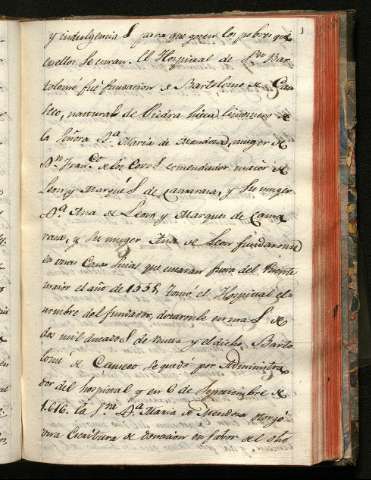 y indulgencias para que gozen los pobres que
en ellos se curan. El Hospital de Sn. Bar-
tolomé fué fundacion de Bartolomé de Can
seco, natural de Piedra hita
la Señora Da. Maria de Mendoza, muger de
Dn. Franco. de los Covos comendador mayor de
Leon y Marques de Camarasa, y su muger
Da. Ana de Leon y Marques de Cama
rasa, y su muger Ana de Leon fundaronse
en unas Casas suias que estavan fuera del Puente
maior el año de 1555 tomó el Hospital el
nombre del fundador, dexaronle renta de
dos mil ducados de renta y el dicho Barto
lomé de Canseco se quedó por Administra
dor del hospital y en 6 de Septiembre de
1616. la Sra. Da. Maria de Mendoza otorgó
una escritura de donacion en fabor del dho